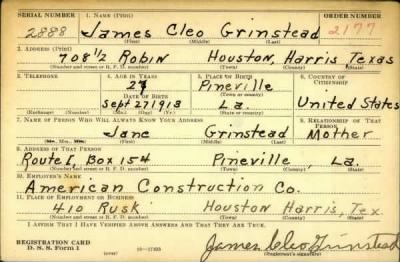 SERIAL NUMBER 1. NAME (Print) ORDER NUMBER
2888 James Cleo Grinstead 2177
(First) (Middle) (Last)
2. ADDRESS (Print)
708 1/2 Robin Houston, Harris, Texas
(Number and street or R. F. D. number) (Town) (County) (State)
3. TELEPHONE 4. AGE IN YEARS 5. PLACE OF BIRTH 6. COUNTRY OF CITIZENSHIP
27 Pineville
DATE OF BIRTH (Town or county)
Sept 27 1913 La. United States
(Exchange) (Number) (Mo.) (Day) (Yr.) (State or country)
7. NAME OF PERSON WHO WILL ALWAYS KNOW YOUR ADDRESS 8. RELATIONSHIP OF THAT PERSON
Jane Grinstead Mother
(Mr., Mrs., Miss) (First) (Middle) (Last)
9. ADDRESS OF THAT PERSON
Route 1, Box 154 Pineville, La.
(Number and street or R. F. D. number) (Town) (County) (State)
10. EMPLOYER'S NAME
American Construction Co.
11. PLACE OF EMPLOYMENT OR BUSINESS
410 Rusk Houston Harris, Tex
(Number and street or R. F. D. number) (Town) (County) (State)
I AFFIRM THAT I HAVE VERIFIED ABOVE ANSWERS AND THAT THEY ARE TRUE.
REGISTRATION CARD
D. S. S. Form 1 (over) James Cleo Grinstead
(Registrant's signature)